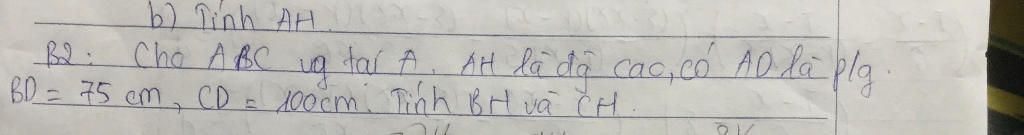 b) Tính AH.
B2: Cho ABC vg tại A, AH là đg cao, có AD là p/g.
BD = 75 cm, CD = 100cm. Tính BH và CH.